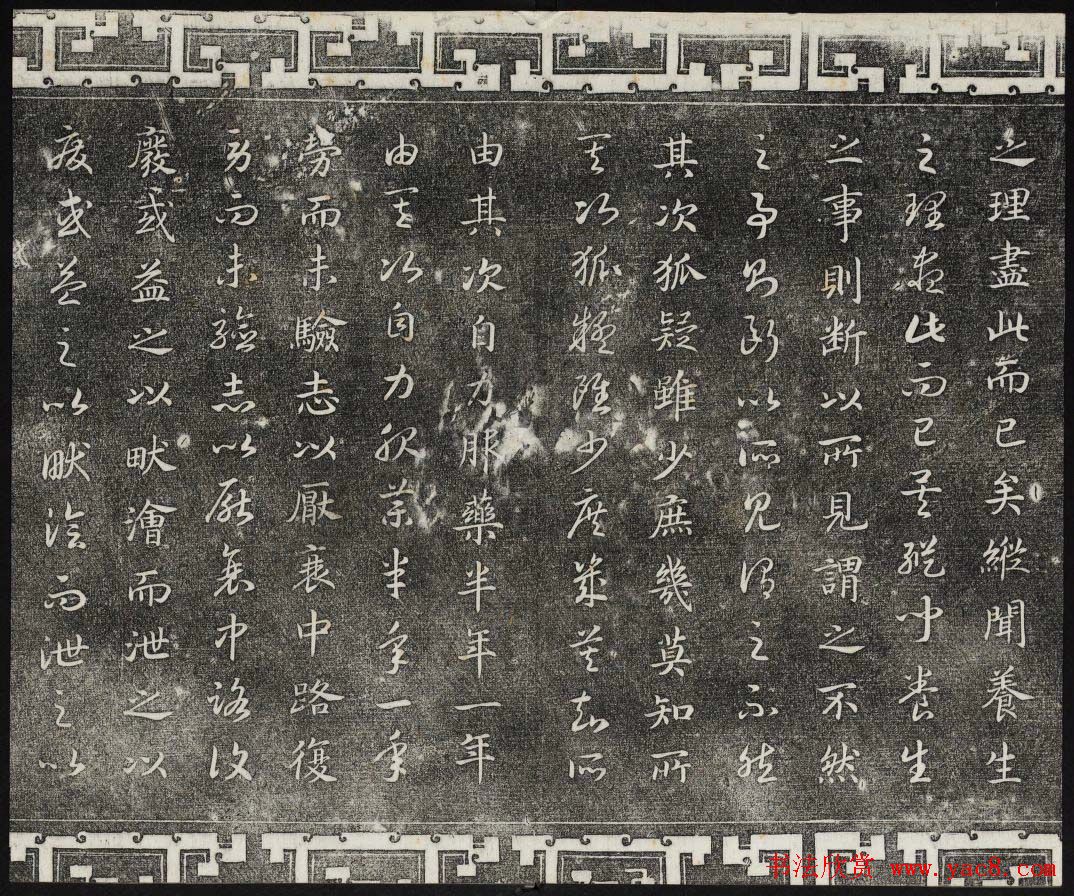 之理盡此而已矣縱聞養生
之理盡此而已矣縱聞養生
之事則断以所見謂之不然
之事則断以所見謂之不然
其次狐疑雖少庶幾莫知所
其次狐疑雖少庶幾莫知所
由其次自力服藥半年一年
由其次自力服藥半年一年
勞而未驗志以厭衰中路復
勞而未驗志以厭衰中路復
廢或益之以畎澮而泄之以
廢或益之以畎澮而泄之以
书法欣赏 www.yac8.com